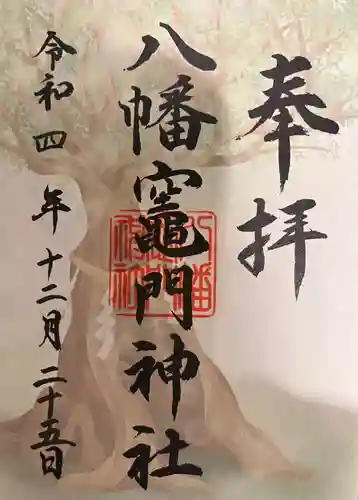 奉拝
八幡竈門神社
令和四年十二月二十五日